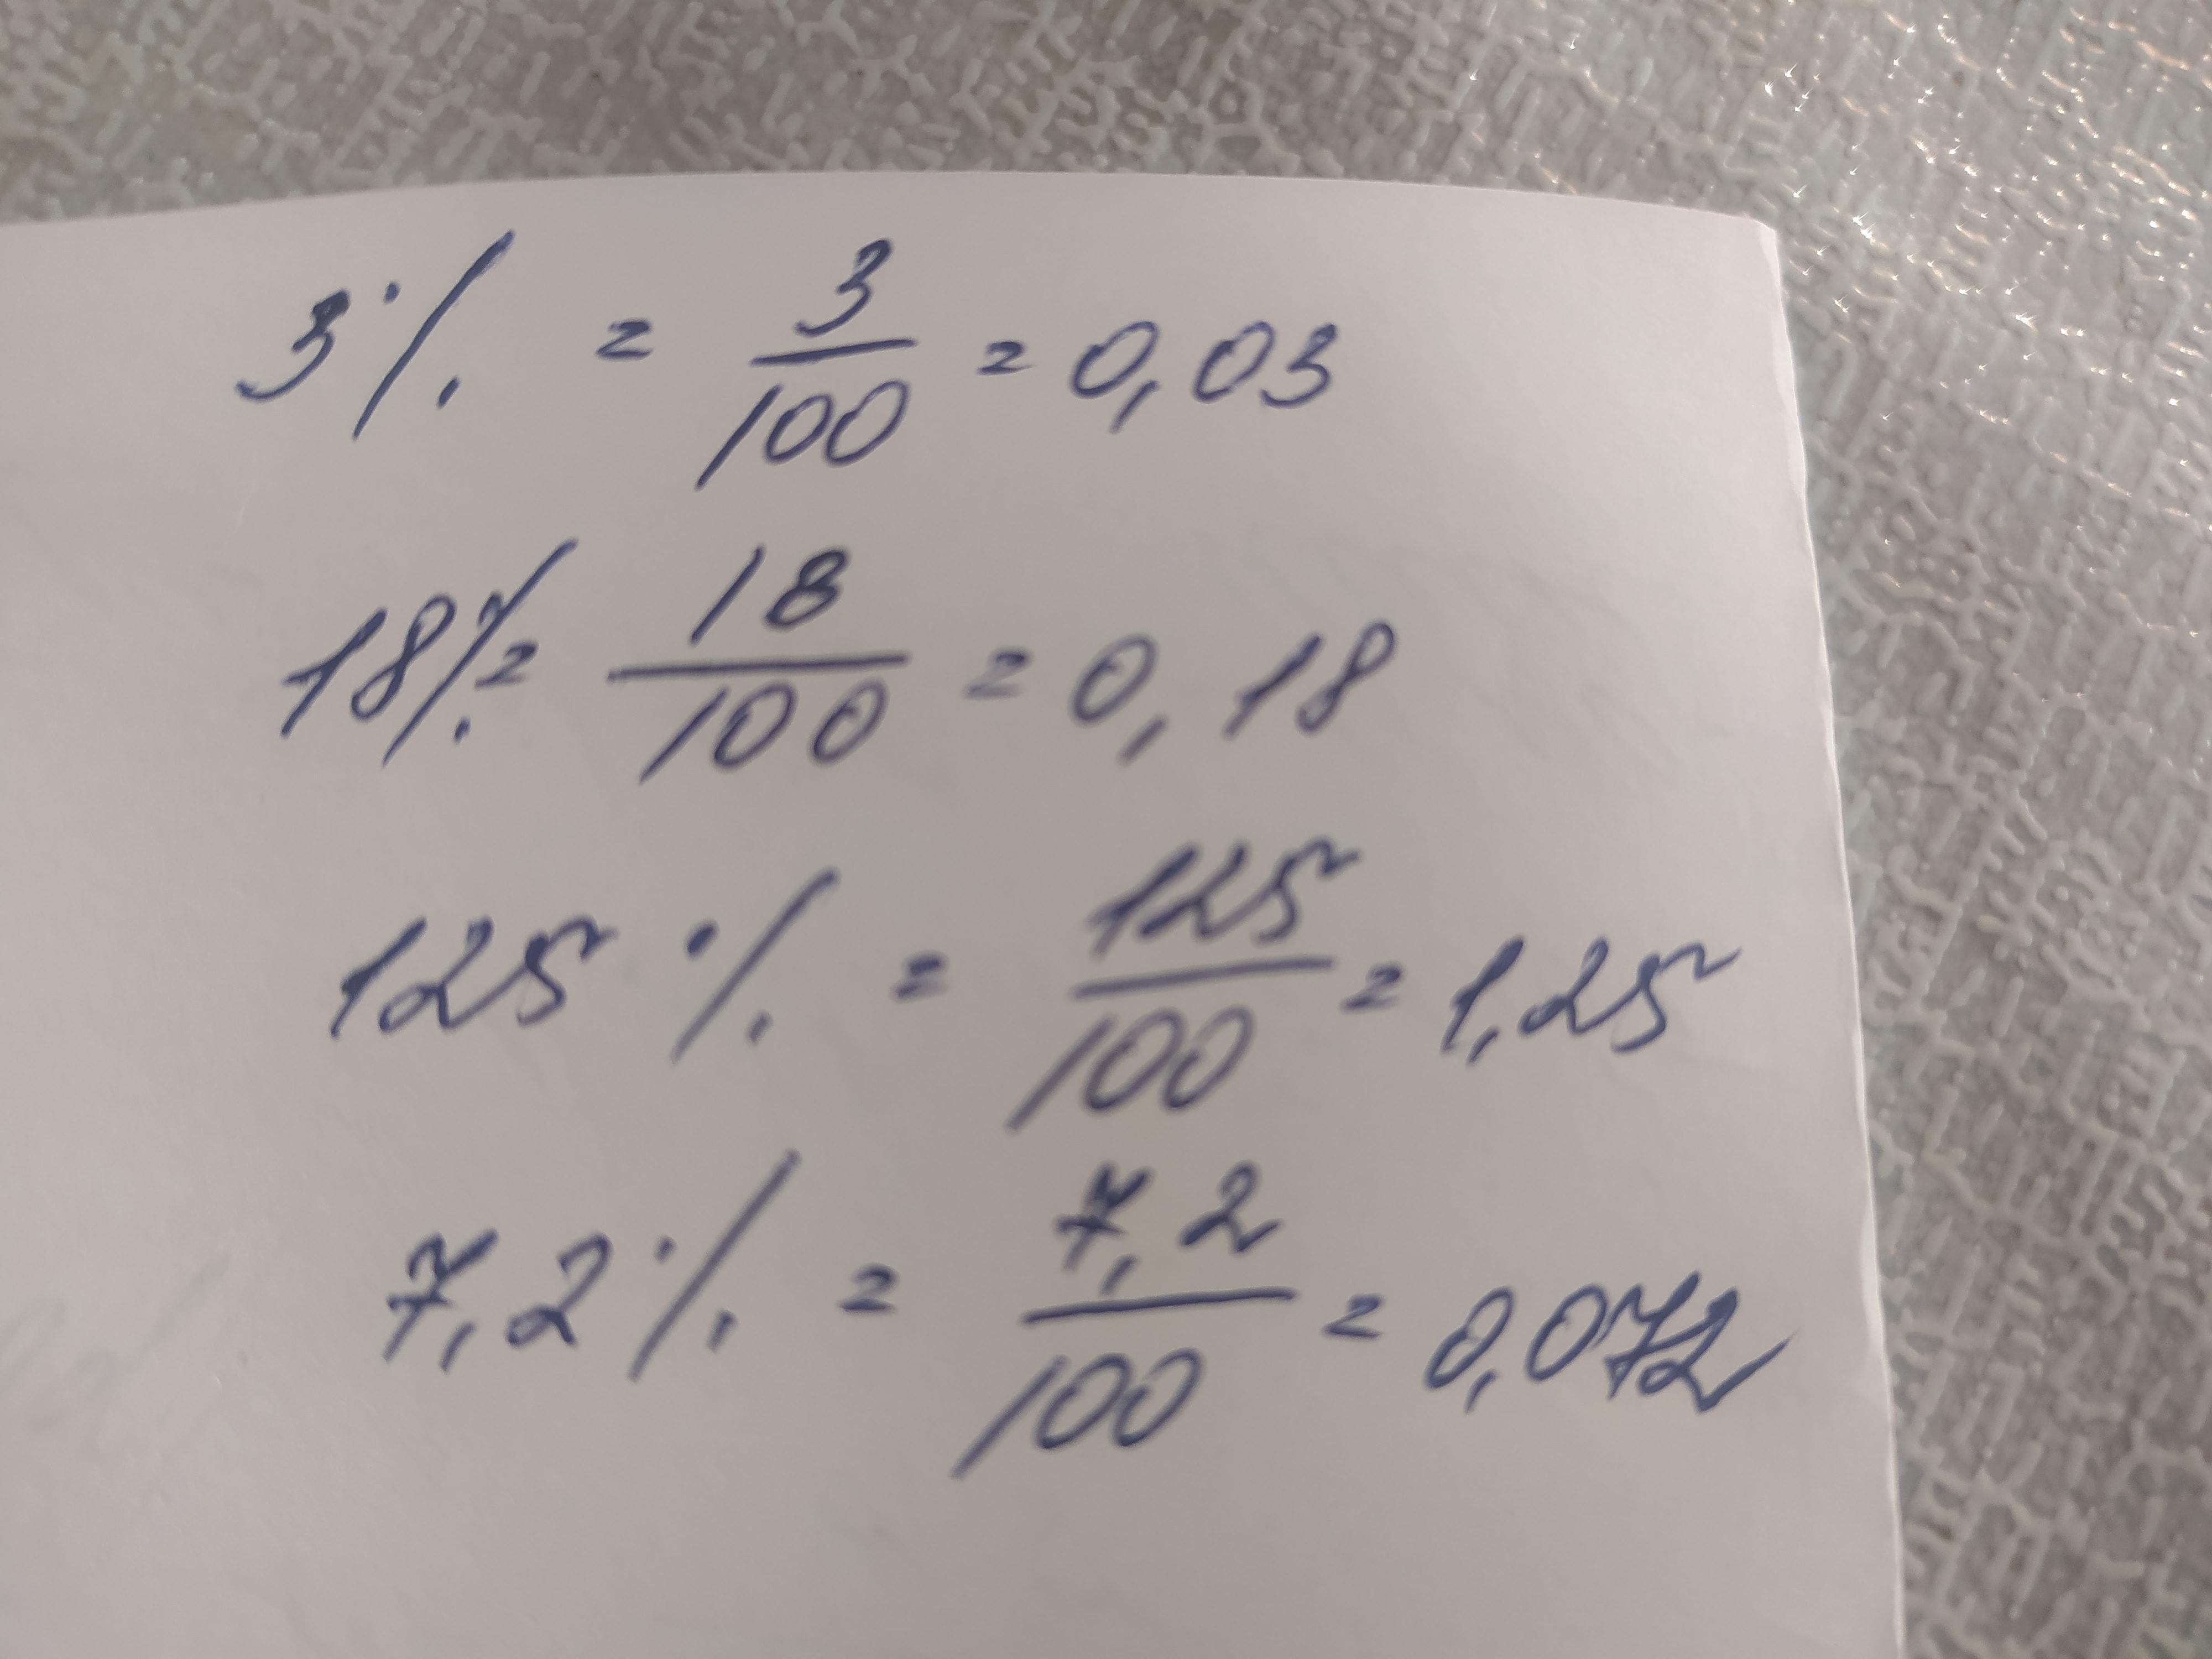 3% = 3/100 = 0,03
18% = 18/100 = 0,18
125 % = 125/100 = 1,25
7,2% = 7,2/100 = 0,072